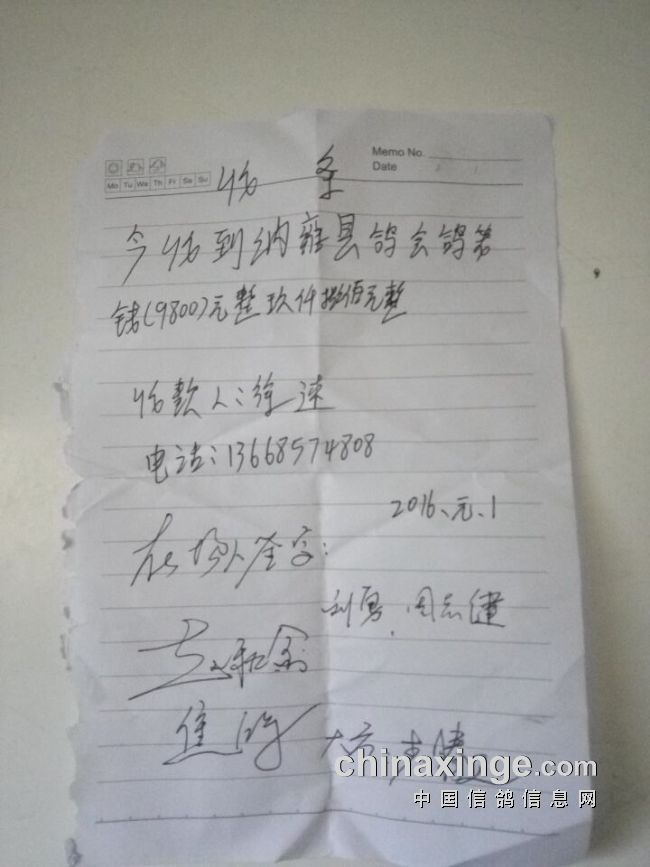 Memo No.
Date
Mo Tu We Th Fr Sa Su
收 条
今收到纳雍县鸽会鸽笼
钱(9800)元整玖仟捌佰元整
收款人:徐速
电话:13668574808
2016、元、1
在场人签字:
利勇 周志健
焦
大方
chinaxinge.com
中国信鸽信息网